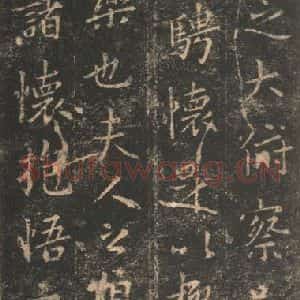 之大俯察
騁懷足以極
樂也夫人之相
諸懷抱悟
Shufawang.CN